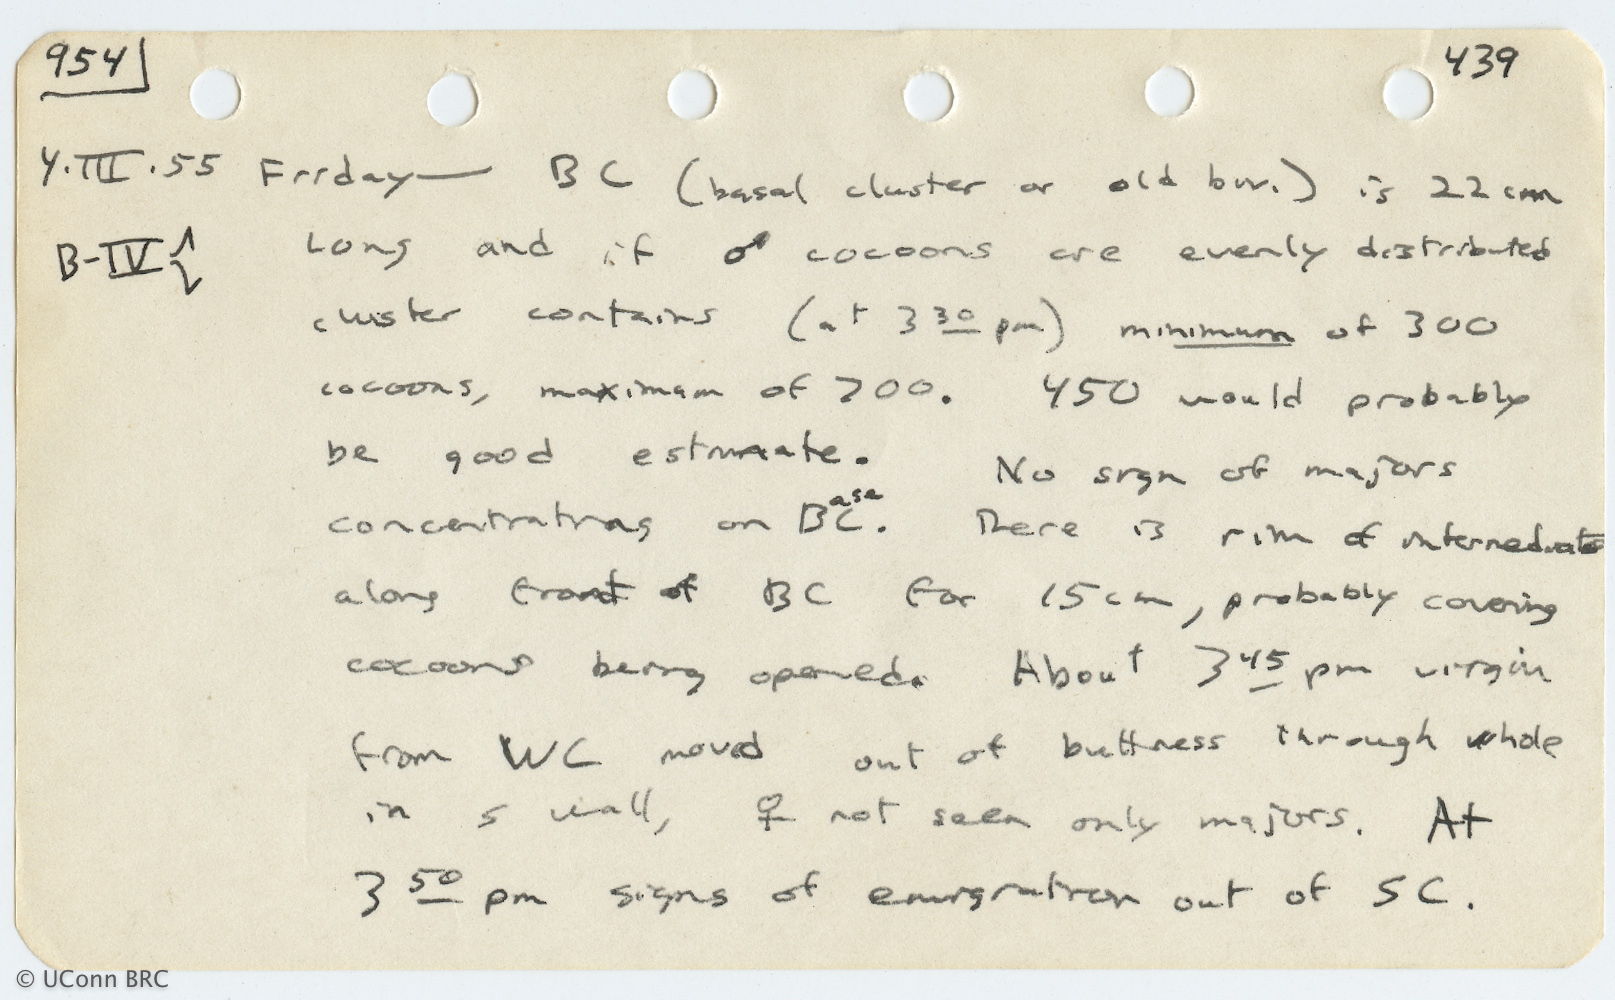 954 439
4·III·55 Friday— BC (basal cluster or old biv.) is 22 cm
B-IV{ Long and if ♂ cocoons are evenly distributed
cluster contains (at 3 30 pm) minimum of 300
cocoons, maximum of 700. 450 would probably
be good estimate. No sign of majors
concentrating on BC. There is rim of intermediate
along front of BC for 15 cm, probably covering
cocoons being opened. About 3 45 pm virgin
from WC moved out of buttness through whole
in S wall, ♀ not seen only majors. At
3 50 pm signs of emigration out of SC.
© UConn BRC